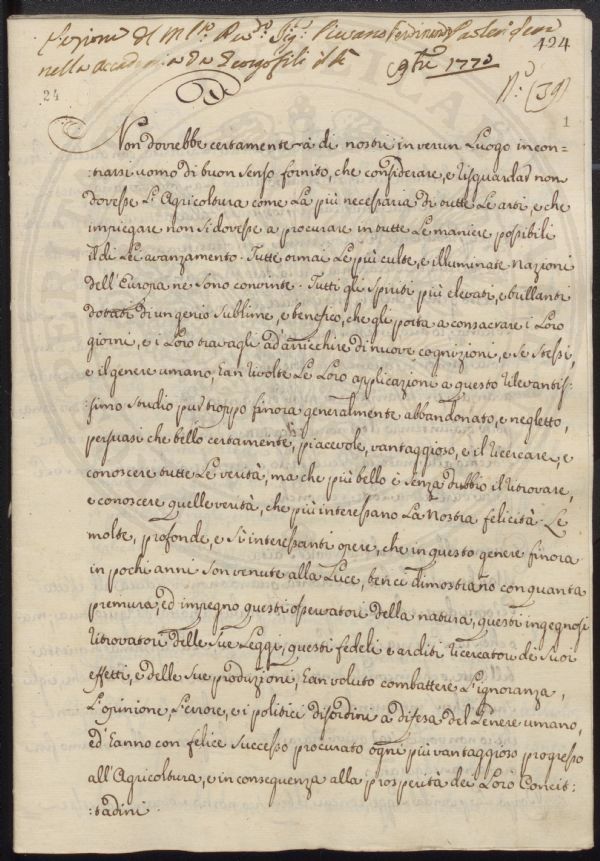 Lezione del M.lto Rev.do Sig.r Pievano Ferdinando Paoletti
nella Accademia dei Georgofili
9bre 1772
N.o (39)
124
24
1
Non dovrebbe certamente a dì nostri in verun Luogo incon=
:trarsi uomo di buon senso fornito, che considerare, e risguardar non
dovesse L'Agricoltura come La più necessaria di tutte Le arti, e che
impiegare non si dovesse a procurare in tutte Le maniere possibili
il di Lei avanzamento. Tutte ormai Le più culte, e illuminate Nazioni
dell'Europa ne sono convinte. Tutti gli spiriti più elevati, e brillanti
dotati di un genio sublime, e benefico, che gli porta a consacrare i Loro
giorni, e i Loro travagli ad arricchire di nuove cognizioni, e se stessi,
e il genere umano, han rivolte Le Loro applicazioni a questo rilevantis=
:simo studio pur troppo finora generalmente abbandonato, e negletto,
persuasi che bello certamente, piacevole, vantaggioso, e il ricercare, e
conoscere tutte Le verità, ma che più bello è senza dubbio il ritrovare,
e conoscere quelle verità, che più interessano La Nostra felicità. Le
molte, profonde, e sì interessanti opere, che in questo genere finora
in pochi anni son venute alla Luce, ben ci dimostrano con quanta
premura, ed impegno questi osservatori della natura, questi ingegnosi
ritrovatori delle sue Leggi, questi fedeli e arditi ricercatori de suoi
effetti, e delle sue produzioni, han voluto combattere L'ignoranza,
L'opinione, L'errore, e i politici disordini a difesa del Genere umano,
ed hanno con felice successo procurato ogni più vantaggioso progresso
all'Agricoltura, e in conseguenza alla prosperità dei Loro Concit:
:tadini.